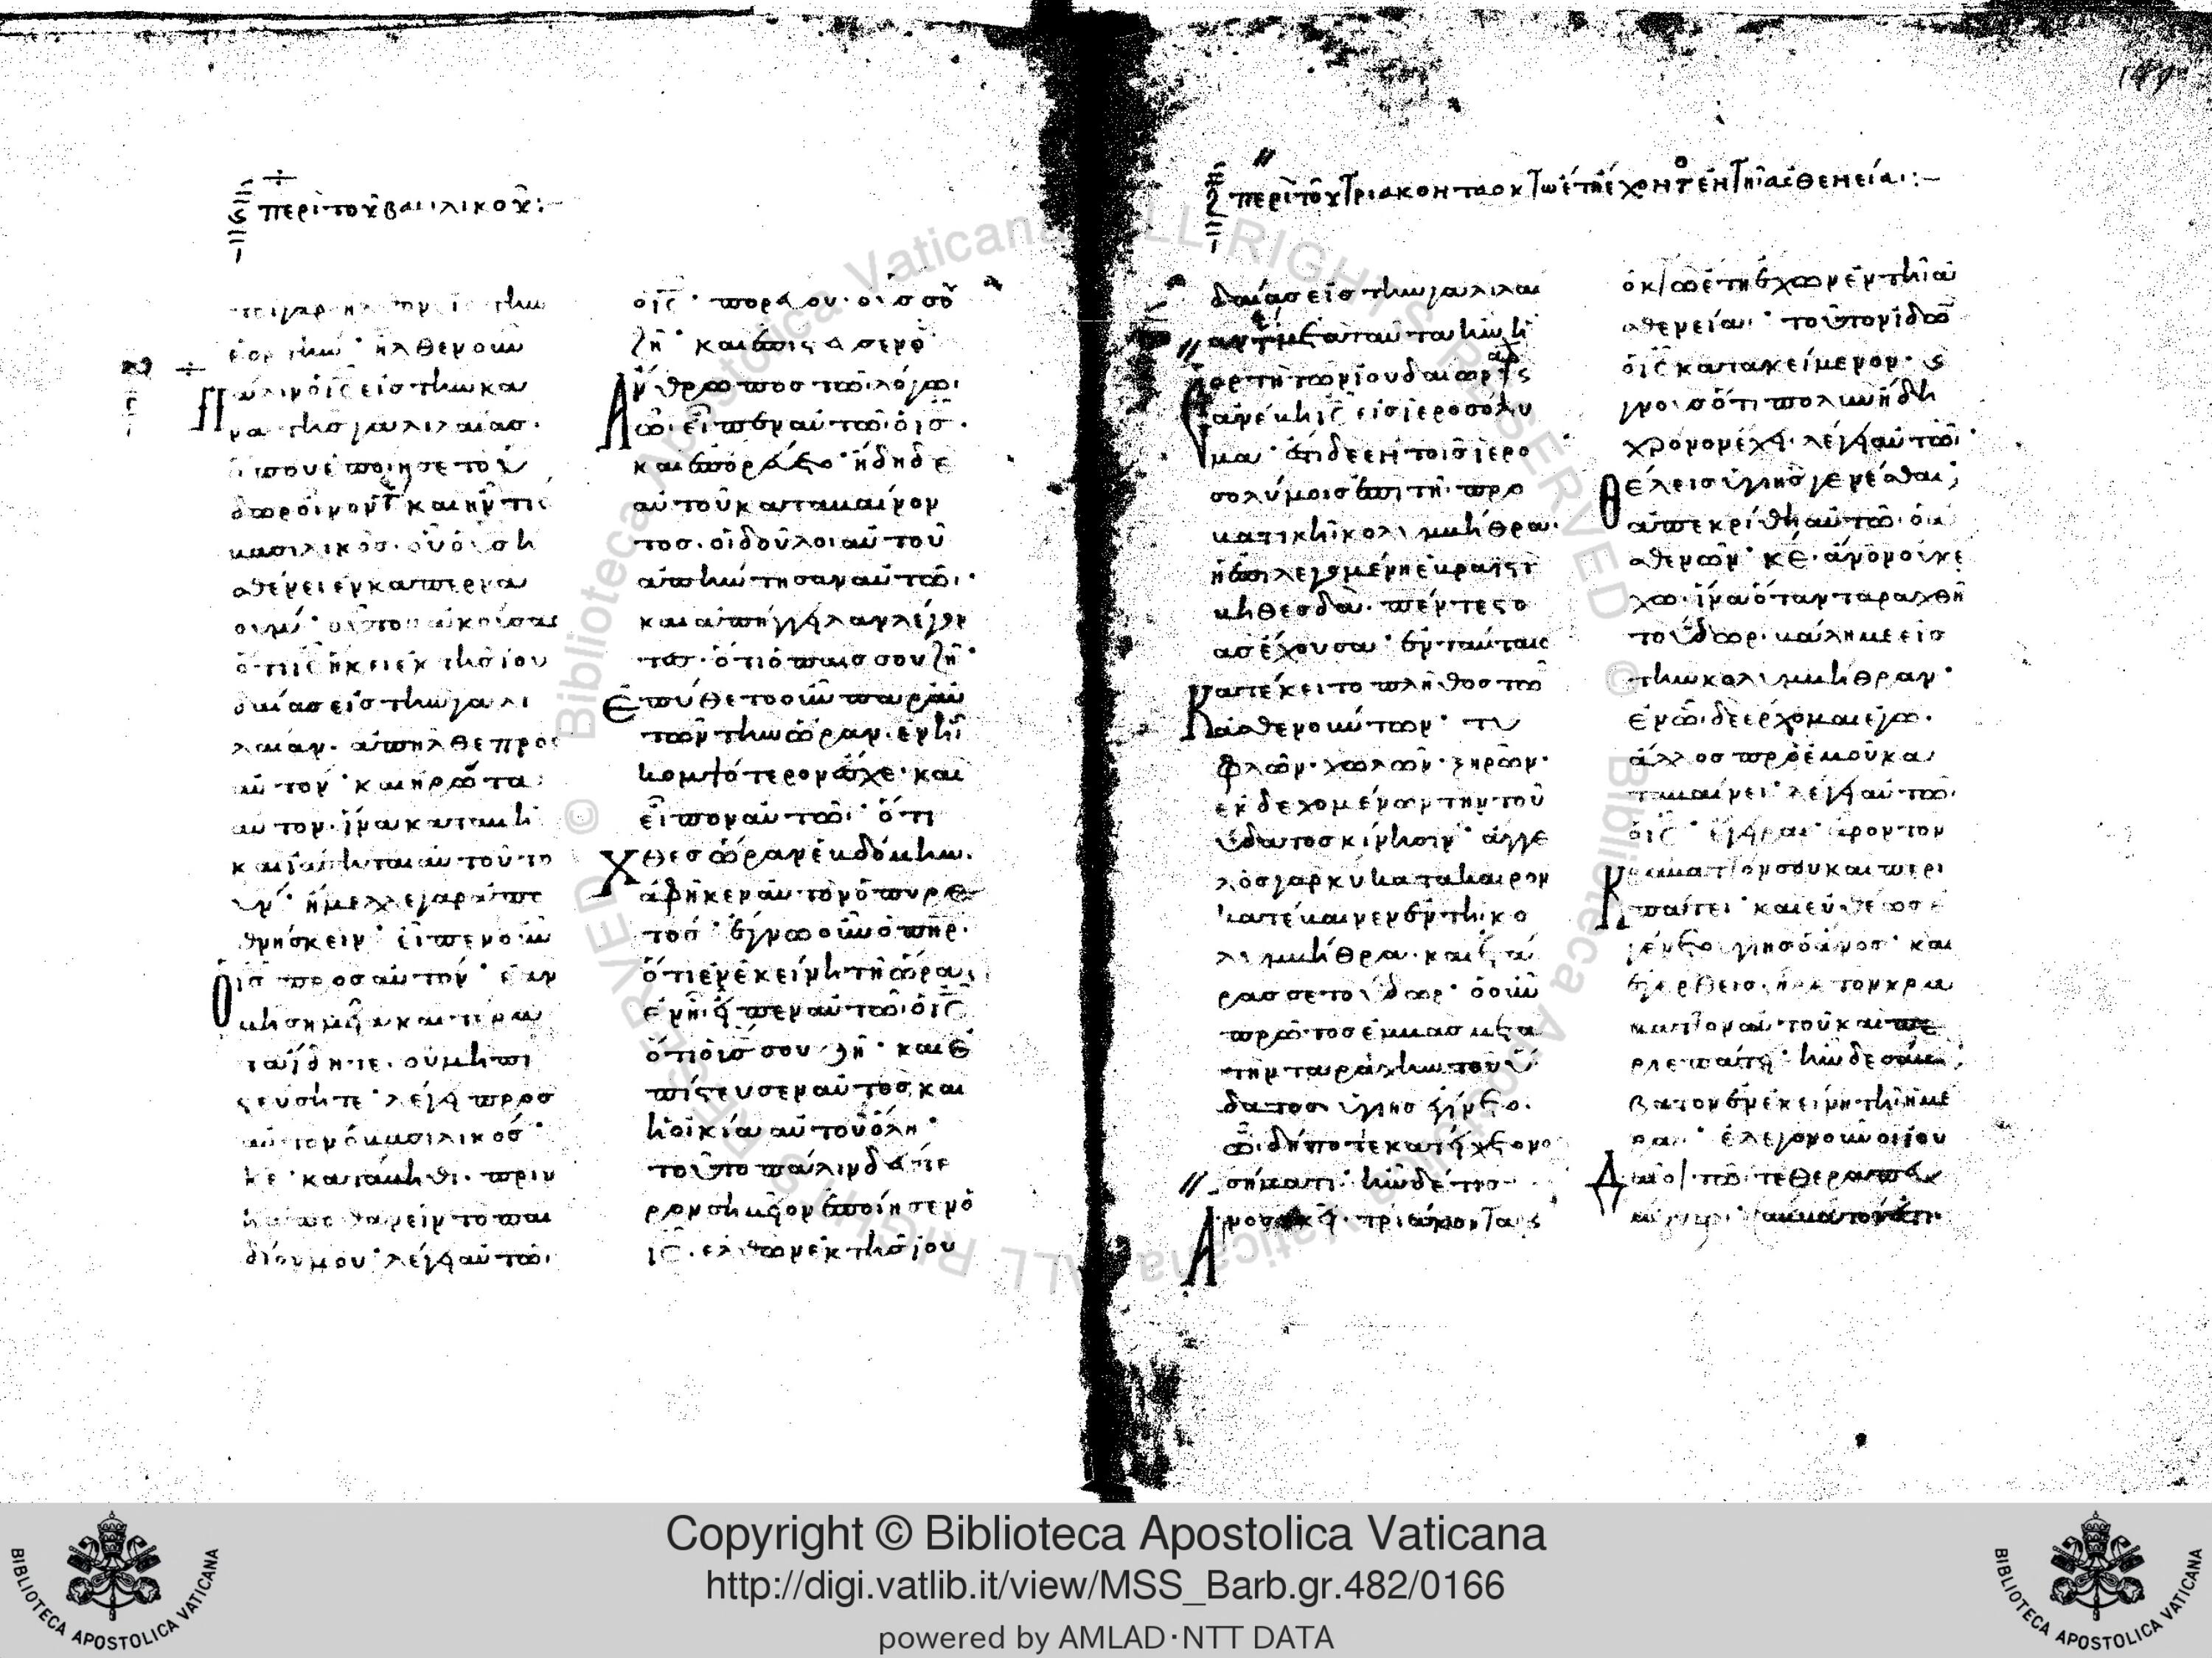 ϛ περὶ τοῦ βασιλικοῦ:-
τοὶ γὰρ ἦλθον εἰς τὴν
ἑορτήν· ἦλθεν οὖν
πάλιν ὁ ις εἰς τὴν κα
νᾶ τῆς γαλιλαίας.
ὅπου ἐποίησε τὸ ὕ
δωρ οἶνον· καὶ ἦν τις
βασιλικὸς. οὗ ὁ υς ἠ
σθένει ἐν καπερνα
ούμ· οὗτος ἀκούσας
ὅτι ις ἥκει ἐκ τῆς ἰου
δαίας εἰς τὴν γαλι
λαίαν. ἀπῆλθε πρὸς
αὐτόν· καὶ ἠρώτα
αὐτον. ἵνα καταβῆ
καὶ ἰάσηται αὐτοῦ τὸ
υν· ἤμελλε γὰρ ἀπο
θνήσκειν· εἶπεν οὖν
ὁ ις προς αὐτόν· ἐὰν
μὴ σημεῖα καὶ τέρα
τα ἴδητε. οὐ μὴ πι
στεύσητε· λέγει προσ
αὐτον ὁ βασιλικόσ·
κε· κατάβηθι. πριν
ἢ ἀποθανεῖν το παι
δίον μου· λέγει αὐτῶ.
ὁ ις· πορεύου. ὁ υς σου
ζῆ· καὶ ἐπίστευσεν ὁ
ἄνθρωπος τῶ λόγω.
ὧ εἶπεν αὐτῶ ὁ ις.
καὶ ἐπορεύετο· ἤδη δὲ
αὐτοῦ καταβαίνον
τος. οἱ δοῦλοι αὐτοῦ
ἀπήντησαν αὐτῶ.
καὶ ἀπήγγειλαν λέγον
τες. ὅτι ὁ παῖς σου ζῆ·
Ἐπύθετο οὖν παρ αὐ
τῶν τὴν ὥραν. ἐν ἧ
κομψότερον ἔσχε. καὶ
εἶπον αὐτῶ· ὅτι
Χθὲς ὥραν ἑβδόμην.
ἀφῆκεν αὐτὸν ὁ πυρε
τός· ἔγνω οὖν ὁ πηρ.
ὅτι ἐν ἐκείνη τῆ ὥρα.
ἐν ἧ εἶπεν αὐτῶ ὁ ις
ὅτι ὁ υς σου ζῆ· καὶ ἐ
πίστευσεν αὐτος καὶ
ἡ οἰκία αὐτοῦ ὅλη·
τοῦτο πάλιν δεύτε
ρον σημεῖον ἐποίησεν ὁ
ις. ἐλθὼν ἐκ τῆς ἰου
ζ περὶ τοῦ τριακονταοκτω ἔτη ἔχοντος ἐν τῆ ἀσθενεία:-
δαίας εἰς τὴν γαλιλαί
αν· μετὰ ταῦτα ἦν ἡ
ἑορτὴ τῶν ἰουδαίων·
ἀνέβη ις εἰς ἱεροσόλυ
μα· ἔστι δὲ ἐν τοῖς ἱερο
σολύμοις ἐπὶ τῆ προ
βατικῆ κολυμβήθρα.
ἡ ἐπιλεγομένη ἑβραϊστὶ
βηθεσδὰ. πέντε στο
ὰς ἔχουσα· ἐν ταύταις
κατέκειτο πλῆθος τῶ
ἀσθενούντων· τυ
φλῶν. χωλῶν. ξηρῶν.
ἐκδεχομένων τὴν τοῦ
ὕδατος κίνησιν· ἄγγε
λος γὰρ κυ κατὰ καιρον
κατέβαινεν ἐν τῆ κο
λυμβήθρα. καὶ ἐτά
ρασσε το ὕδωρ· ὁ οὖν
πρῶτος ἐμβὰς μετὰ
τὴν ταραχὴν τοῦ ὕ
δατος. ὑγιὴς ἐγίνετο.
ὧ δήποτε κατείχετο νο
σήματι· ἦν δέ τις
ἄνος ἐκεῖ. τριάκοντα ϛ
ὀκτὼ ἔτη ἔχων ἐν τῆ ἀ
σθενεία· τοῦτον ἰδὼν
ὁ ις κατακείμενον. ϛ
γνοὺς ὅτι πολὺν ἤδη
χρόνον ἔχει. λέγει αὐτῶ.
Θέλεις ὑγιὴς γενέσθαι;
ἀπεκρίθη αὐτῶ ὁ ἀ
σθενῶν· κε. ἄνον οὐκ ἔ
χω. ἵνα ὅταν ταραχθῆ
τὸ ὕδωρ. βάλη με εἰς
τὴν κολυμβήθραν·
ἐν ὧ δὲ ἔρχομαι ἐγω.
ἄλλος πρὸ ἐμοῦ κα
ταβαίνει· λέγει αὐτῶ.
ὁ ις· ἔγειραι· ἆρον τον
κράβαττόν σου καὶ περι
πάτει· καὶ εὐθέως ἐ
γένετο ὑγιὴς ὁ ἄνος· καὶ
ἐγερθεὶς. ἦρε τον κρά
βαττον αὐτοῦ καὶ πε
ριεπάτει· ἦν δὲ σάβ
βατον ἐν ἐκείνη τῆ ἡμέ
ρα· ἔλεγον οὖν οἱ ἰου
δαῖοι τῶ τεθεραπευ